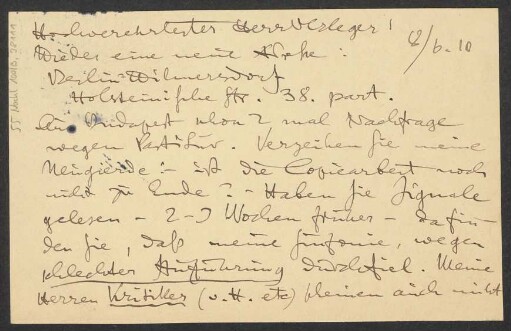 Hochverehrtester Herr Verleger!
12/6.10
Wieder eine neue Adresse:
Berlin-Wilmersdorf
Holsteinische Str. 38. part.
Aus Budapest schon 2 mal Nachfrage
wegen Partitur. Verzeihen Sie meine
Neugierde: – ist die Copiearbeit noch
nicht zu Ende? – Haben Sie Signale
gelesen – 2–3 Wochen früher – da fin
den Sie, daß meine Sinfonie, wegen
schlechter Aufführung durchfiel. Meine
Herren Kritiker (v. H. etc) scheinen auch nicht